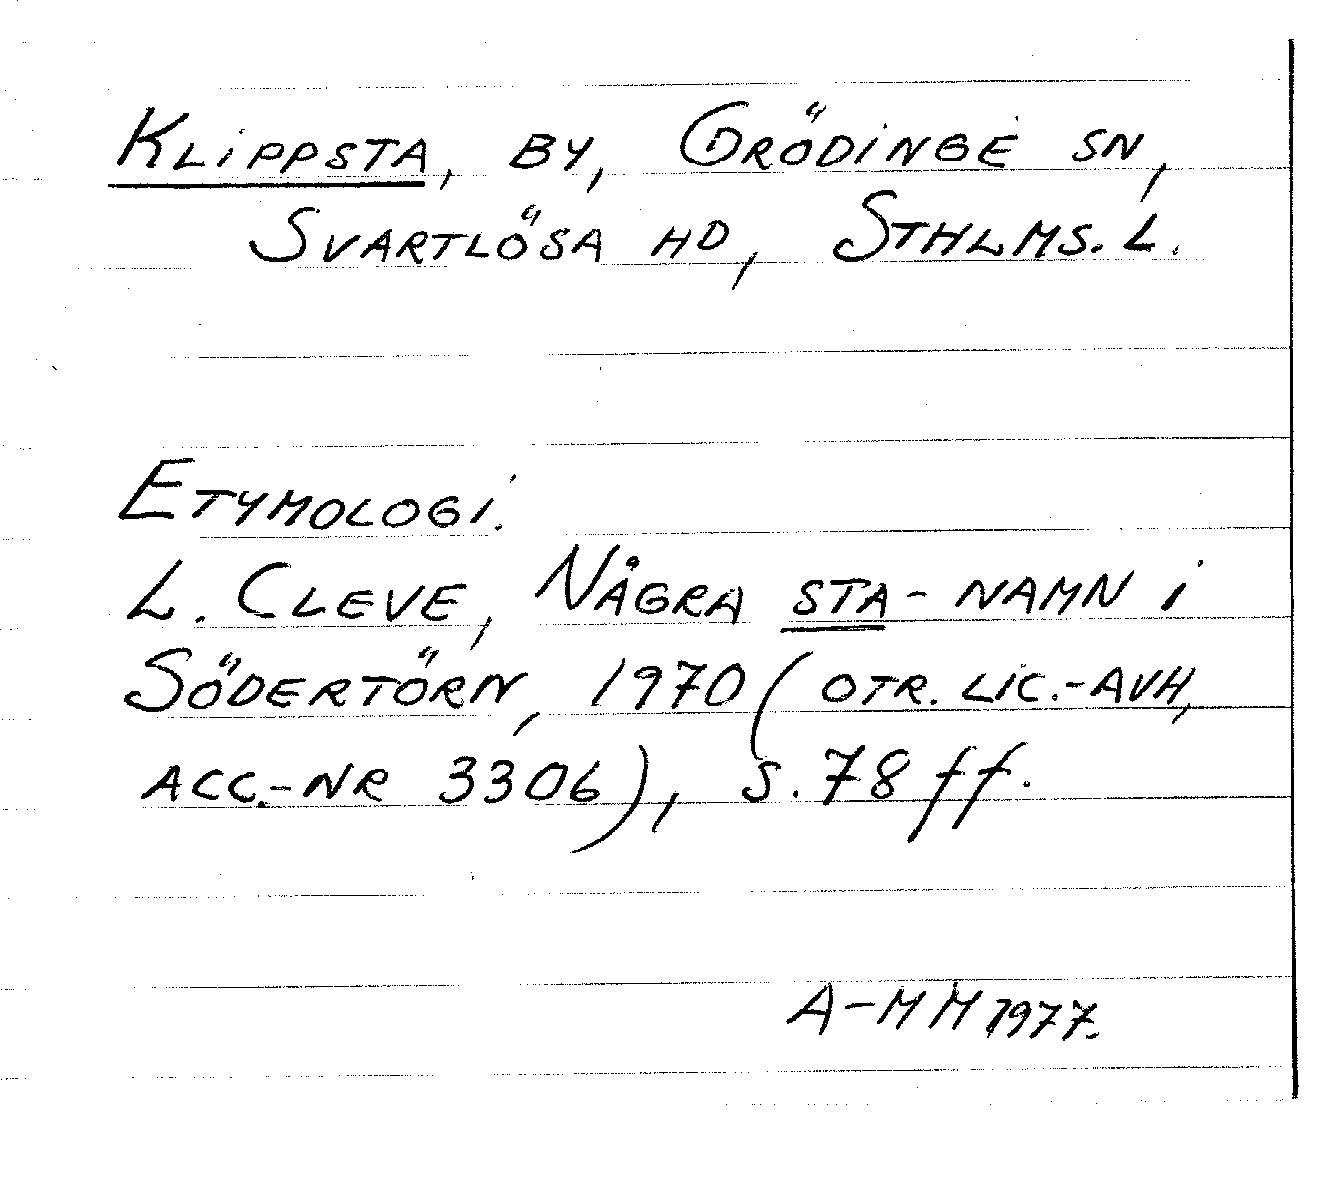 Klippsta, by, Grödinge sn,
Svartlösa hd, Sthlms. l.
Etymologi.
L. Cleve, Några sta-namn i
Södertörn, 1970 (otr. lic.-avh,
acc.-nr 3306), s. 78 ff.
A-MM 1977.